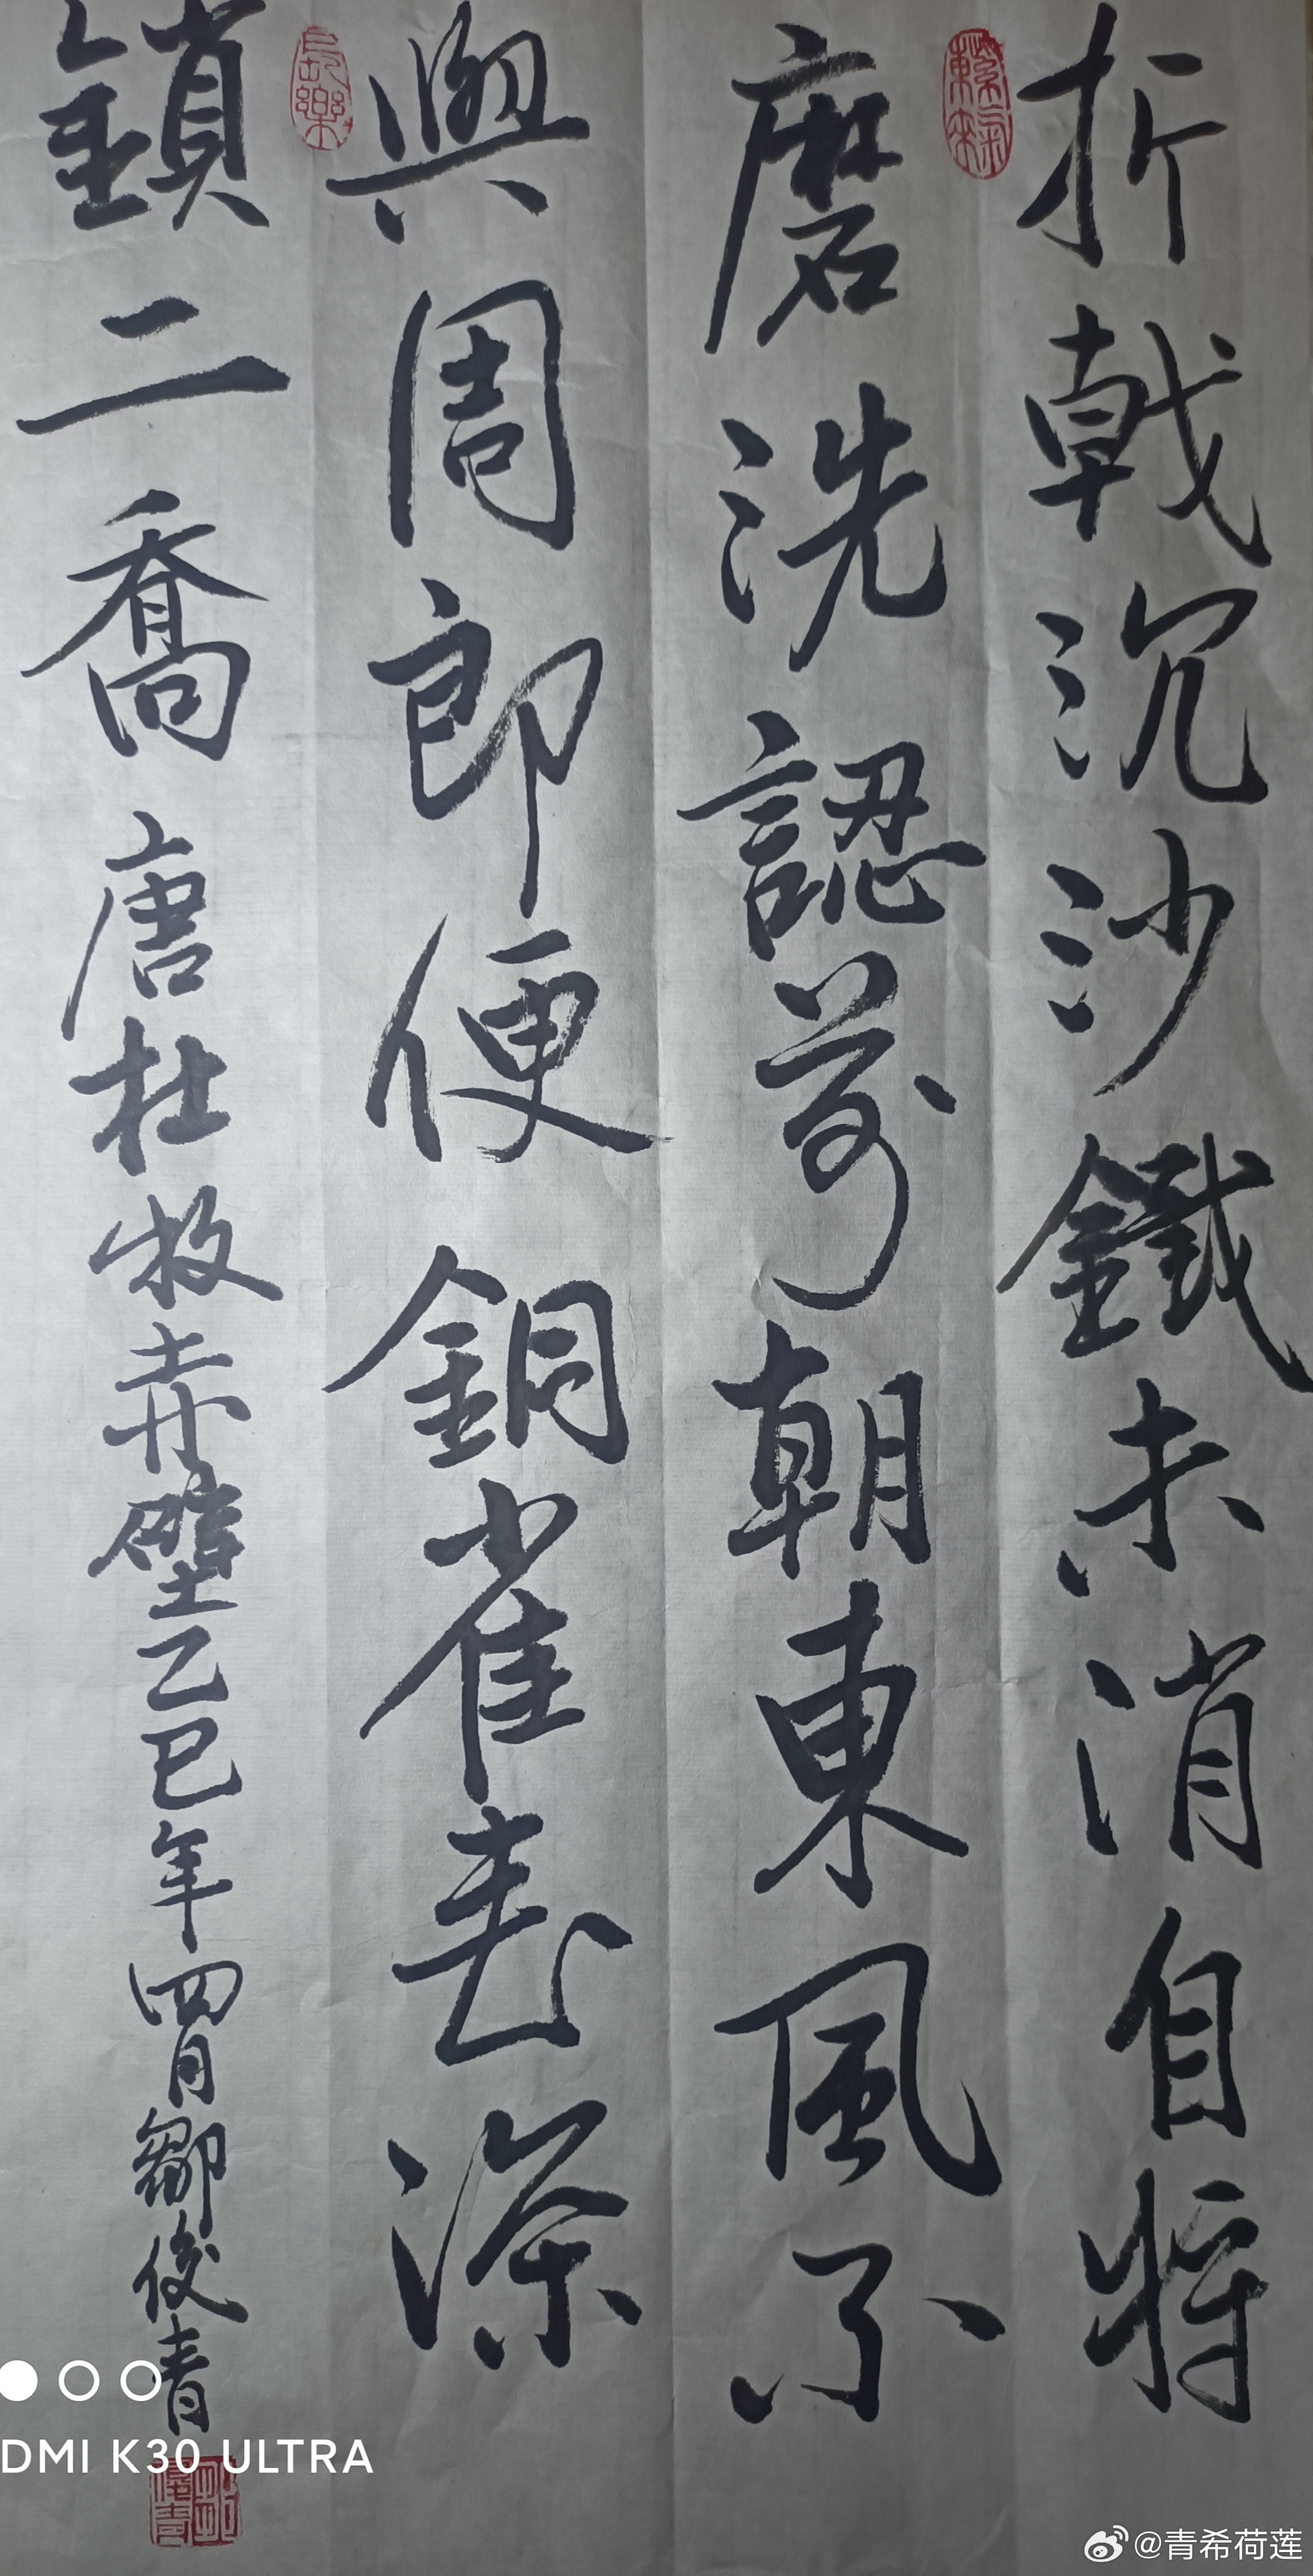 折戟沉沙鐵未消自將
磨洗認前朝東風不
與周郎便銅雀春深
鎖二喬 唐杜牧赤壁乙巳年四月鄒俊青
長樂
紫氣東來
鄒俊青
DMI K30 ULTRA
@青希荷莲